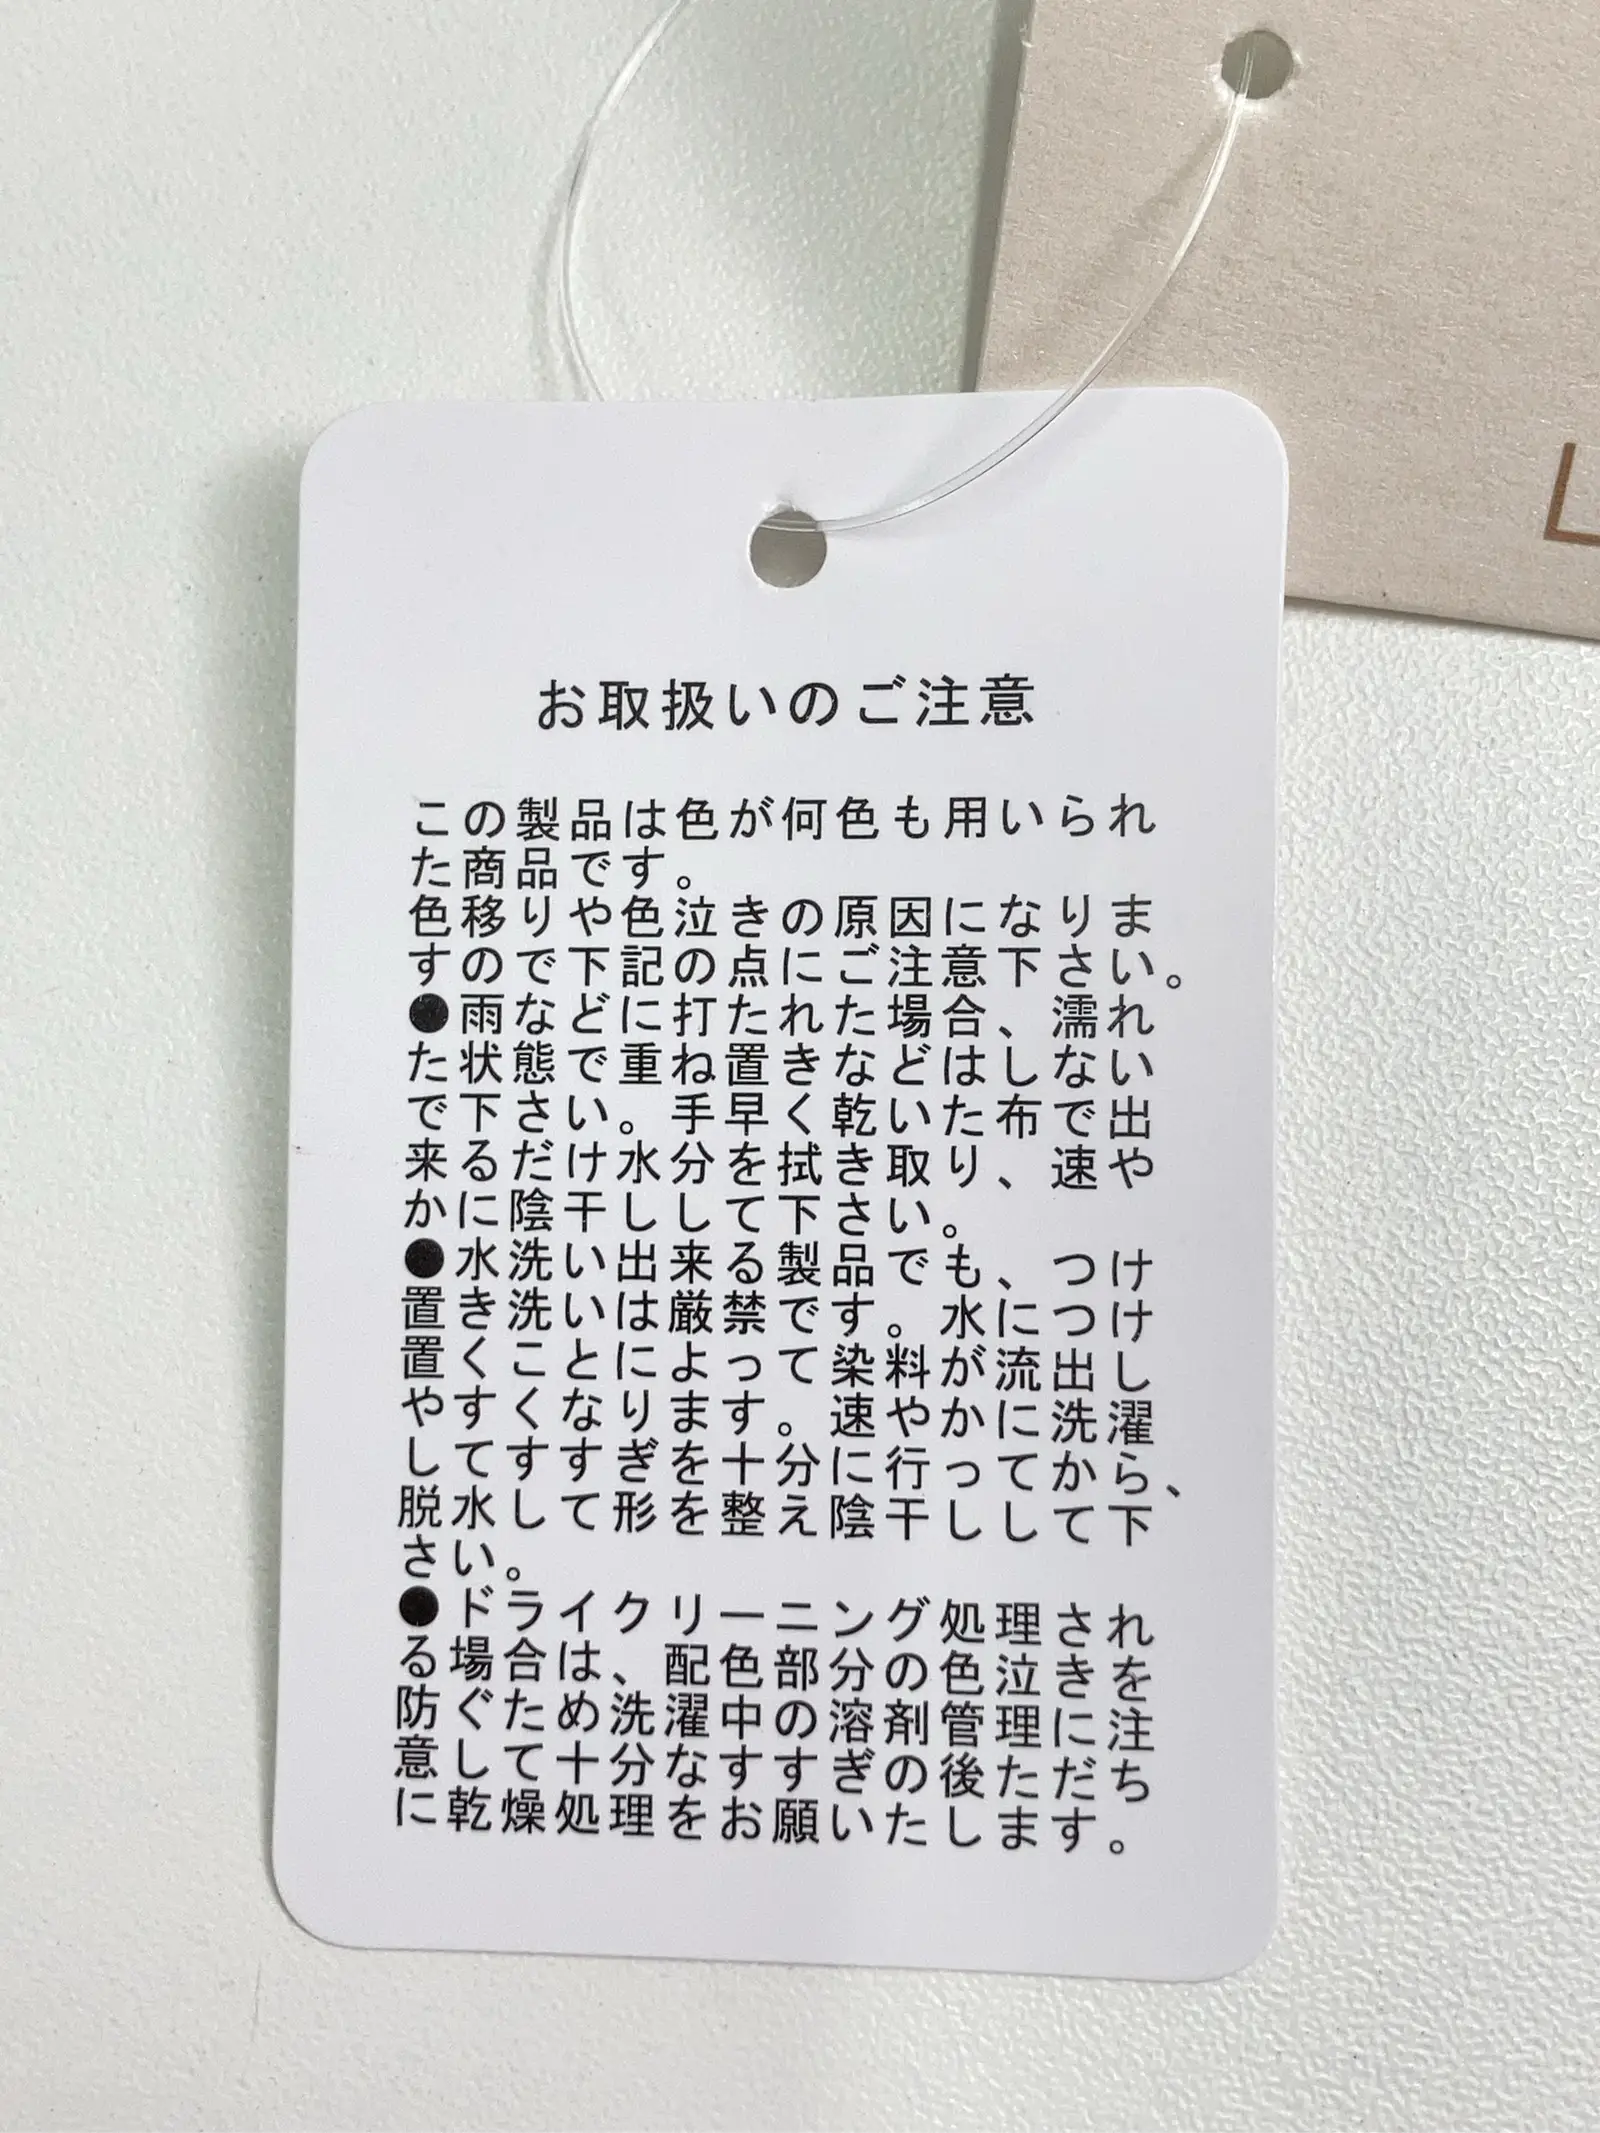 お取扱いのご注意
この製品は色が何色も用いられ
た商品です。
色移りや色泣きの原因になりま
すので下記の点にご注意下さい。
●雨などに打たれた場合、濡れ
た状態で重ね置きなどはしない
で下さい。手早く乾いた布で出
来るだけ水分を拭き取り、速や
かに陰干しして下さい。
●水洗い出来る製品でも、つけ
置き洗いは厳禁です。水につけ
置くことによって染料が流出し
やすくなります。速やかに洗濯
してすすぎを十分に行ってから、
脱水して形を整え陰干しして下
さい。
●ドライクリーニング処理され
る場合は、配色部分の色泣きを
防ぐため洗濯中の溶剤管理に注
意して十分なすすぎの後ただち
に乾燥処理をお願いたします。